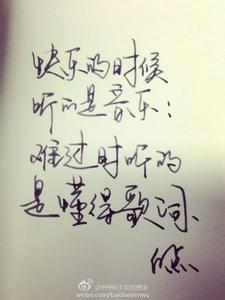 快乐的时候
听的是音乐；
难过时听的
是懂得歌词、
weibo.com/baidianrenwu